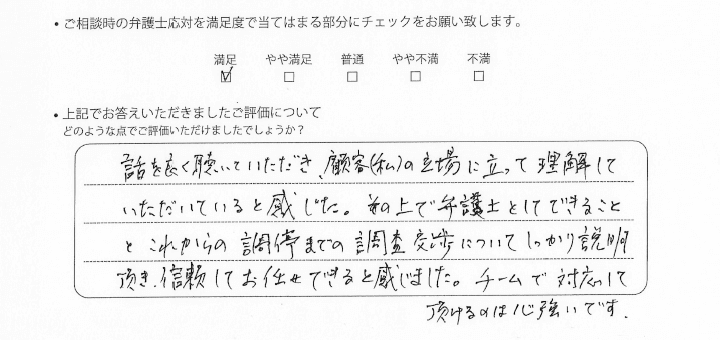 ・ご相談時の弁護士応対を満足度で当てはまる部分にチェックをお願い致します。
満足 やや満足 普通 やや不満 不満
☑ □ □ □ □
・上記でお答えいただきましたご評価について
どのような点でご評価いただけましたでしょうか？
話を良く聴いていただき、顧客(私)の立場に立って理解して
いただいていると感じた。その上で弁護士としてできること
とこれからの調停までの調査交渉についてしっかり説明
頂き、信頼してお任せできると感じました。チームで対応して
頂けるのは心強いです.